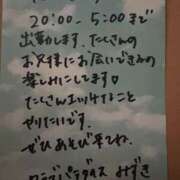 20:00-5:00まで
出勤します。たくさんの
お客様にお会いできるの
楽しみにしてます。
たくさんエッチなこと
やりたいです。
ぜひあそび来てね。
みずき